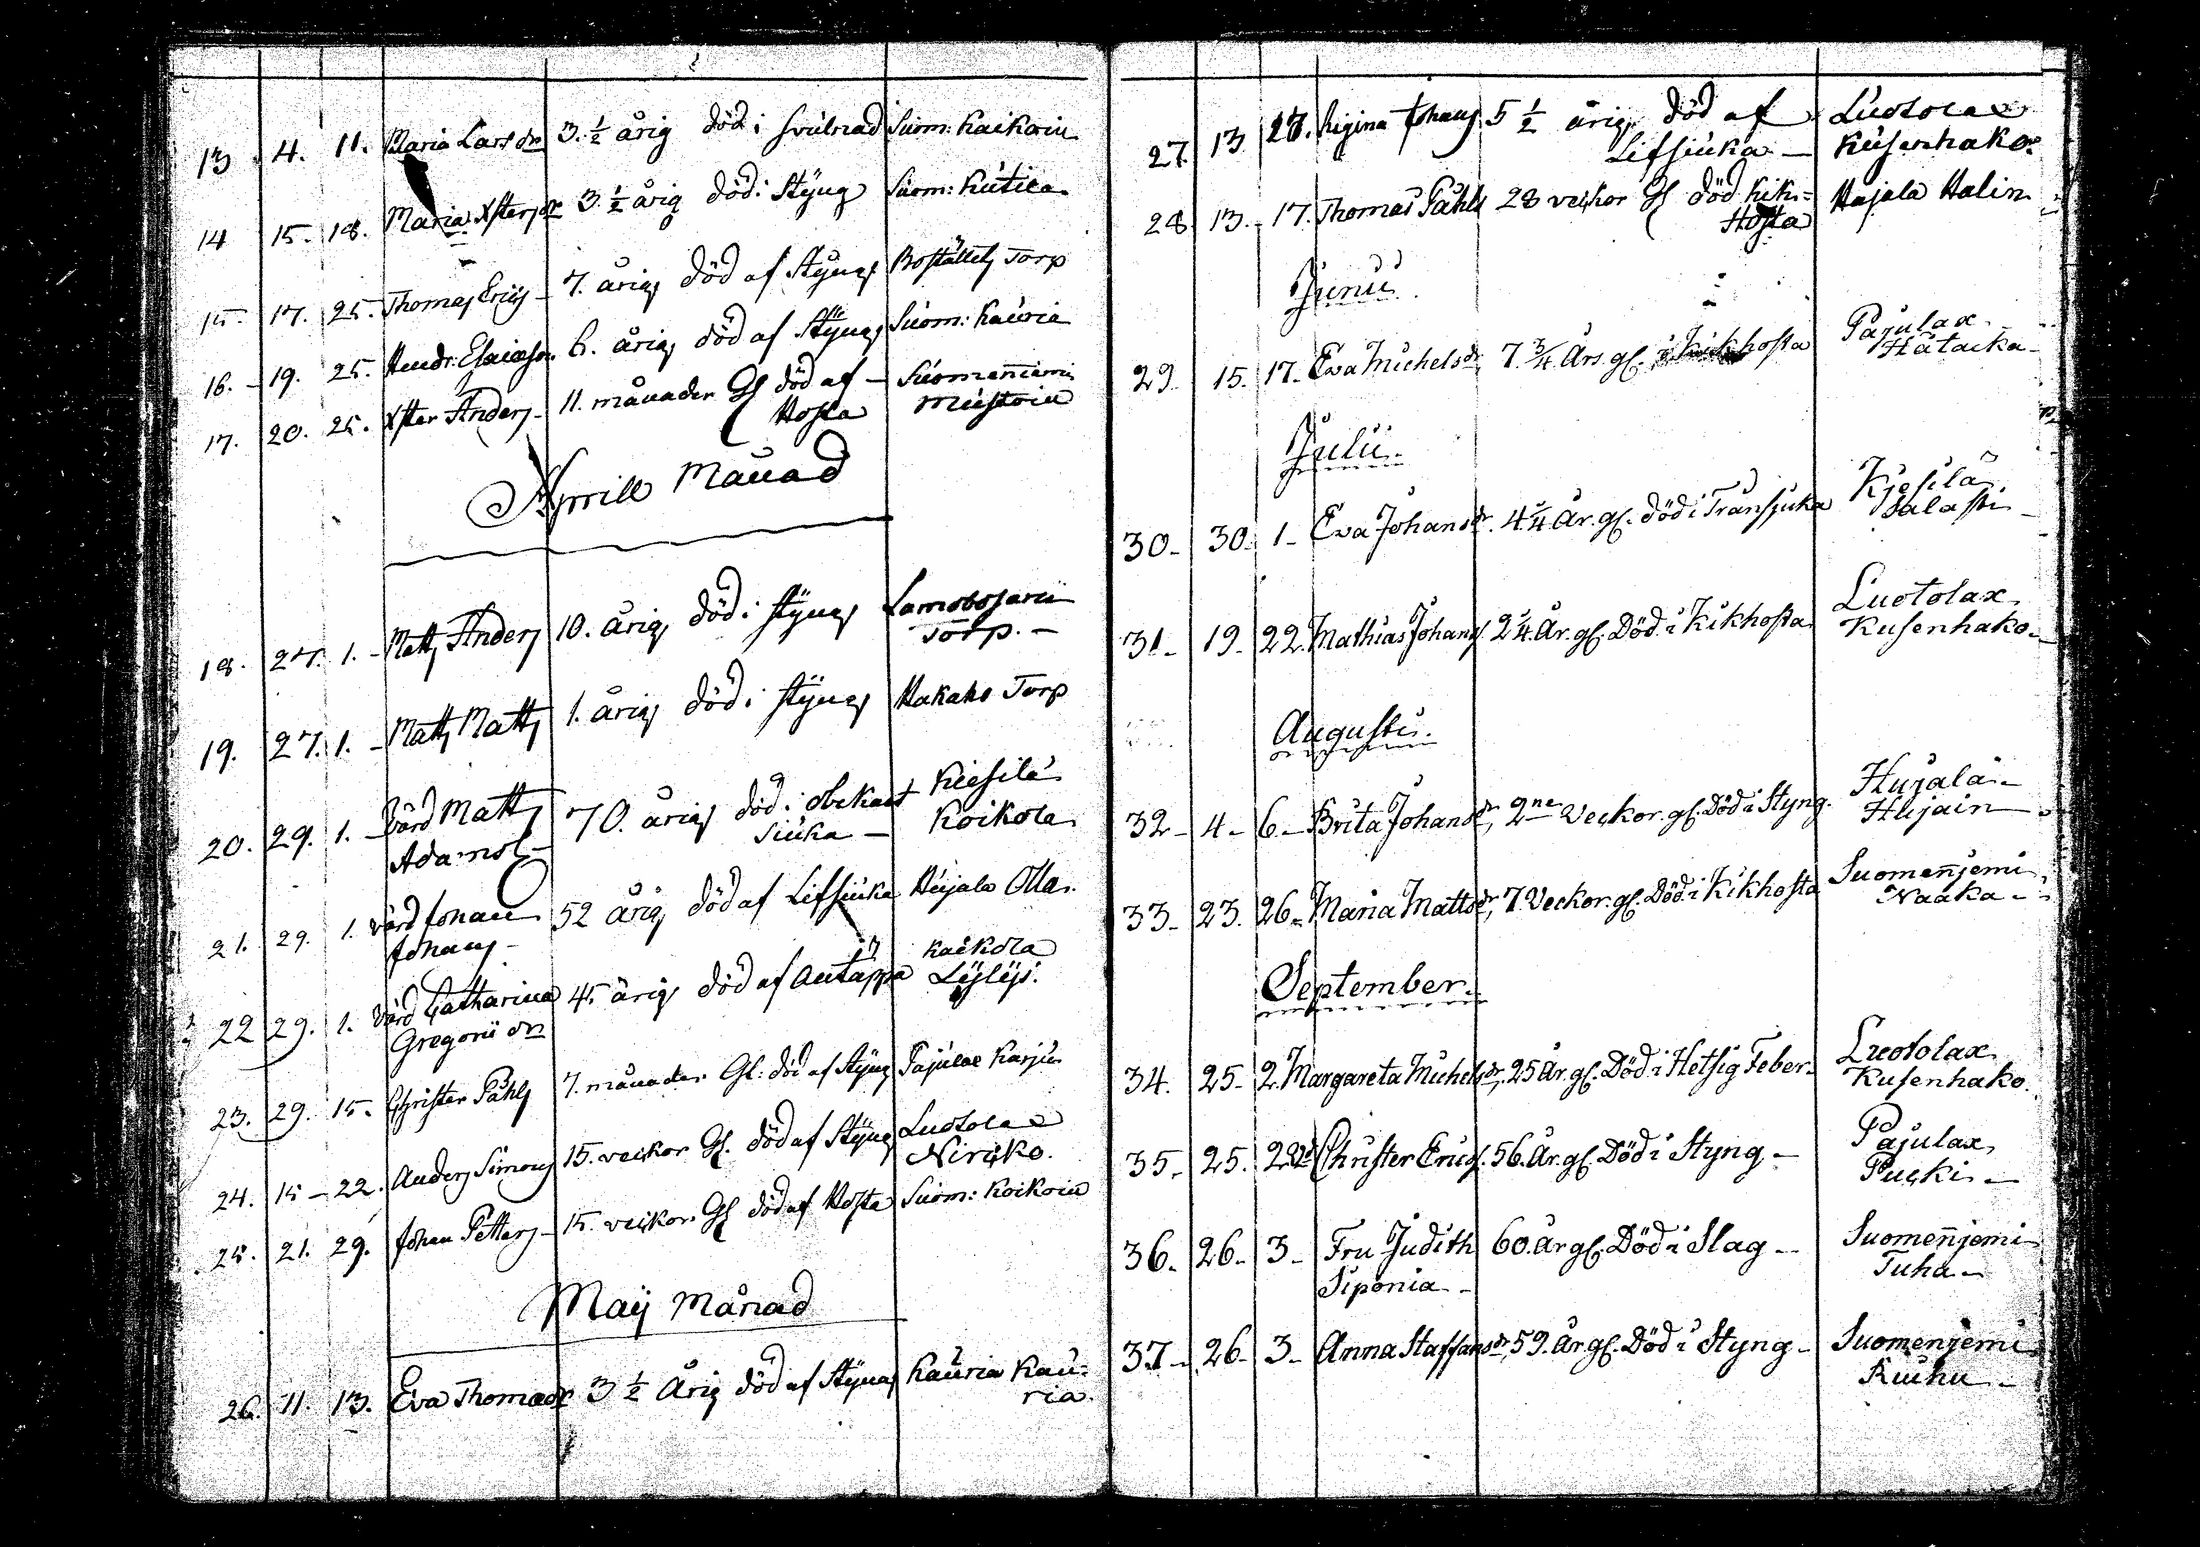 13. 4. 11. Maria Larsdr 3. ½ årig död i svulnad Suom: Kaikoin
14 15. 18. Maria Xstersdr 3. ½ årig död i Styng Suom: Kutila
15. 17. 25. Thomas Erics 7. årig död af Styng Boställets Torp
16. 19. 25. Hendr: Esaiæson 6. årig död af Styng Suom: Kauria
17. 20. 25. Xster Anders 11. månader Gl död af Suomeniemi
Hosta Mustoin
Aprill Månad
18. 27. 1. Matts Anders 10. årig död i styng Lamposaari
Torp.
19. 27. 1. Matts Matts 1. årig död i styng Hakaho Torp
20. 29. 1. Bd Matts 70. årig död i obekant Kiesilä
Adamsl siuka Koikola
21. 29. 1. Bd Johan 52 årig död af Lifsiuka Hujala Olla.
Johans
22 29. 1. Catharina 45 årig död af Kaikola
Gregorii dr Lylys.
23. 29. 15. Christer Påhls 7. månader Gl: död af Styng Pajulax Karju
24. 15 - 22. Anders Simons 15. veckor Gl. död af Styng Luotolax
Niriko.
25. 21. 29. Johan Petters 15. veckor Gl död af Hosta Suom: Koikoin
Maij Månad
26. 11. 13. Eva Thomædr 3 ½ Årig död af Styng Kauria Kau-
ria
27. 13 Regina Johans 5 ½ årig död af Luotolax
Lifsiuka Kusenhako.
28. 13. 17. Thomas Påhls 28 veckor Gl död Kik- Hujala Halin
Hosta
Junii
29. 15. 17. Eva Michelsdr, 7. ¾ Års gl. i Kikhosta Pajulax
Hätäikä
Julii
30. 30. 1 Eva Johansdr. 4 ¼ År. gl. död i Transjuka Kjesilä
Salasti
31. 19. 22. Mathias Johans. 2 ¼ År. gl. Död i Kikhosta Luotolax
Kusenhako
Augusti.
32. 4. 6. Brita Johansdr, 2ne Veckor. gl. Död i Styng. Hujala
Hujain
33. 23. 26. Maria Mattsdr, 7 Veckor. gl. Död i Kikhosta Suomenjemi
Naaka
September.
34. 25. 2. Margareta Michelsdr, 25 År. gl. Död i Hetsig Feber. Luotolax
Kusenhako.
35. 25. Christer Erics. 56. År. gl. Död i Styng Pajulax
Pucki
36. 26. 3 Fru Judith 60. År gl. Död i Slag Suomenjemi
Siponia Tuha
37. 26. 3 Anna Staffansdr, 59. År gl. Död i Styng Suomenjemi
Kuihu